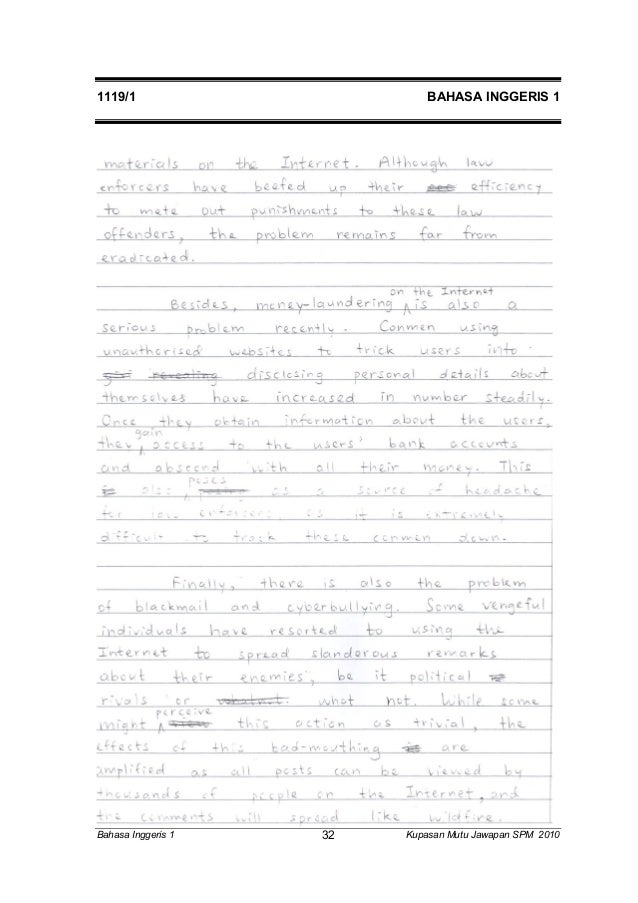 1119/1 BAHASA INGGERIS 1
materials on the Internet. Although law
enforcers have beefed up their efficiency
to mete out punishments to these law
offenders, the problem remains far from
eradicated.
on the Internet
Besides, money-laundering is also a
serious problem recently. Conmen using
unauthorised websites to trick users into
revealing disclosing personal details about
themselves have increased in number steadily.
Once they obtain information about the users,
gain
they access to the users' bank accounts
and abscond with all their money. This
poses
is also as a source of headache
for law enforcers, as it is extremely
difficult to track these conmen down.
Finally, there is also the problem
of blackmail and cyberbullying. Some vengeful
individuals have resorted to using the
Internet to spread slanderous remarks
about their enemies, be it political
rivals or what not. While some
perceive
might view this action as trivial, the
effects of this bad-mouthing is are
amplified as all posts can be viewed by
thousands of people on the Internet, and
the comments will spread like wildfire.
Bahasa Inggeris 1 32 Kupasan Mutu Jawapan SPM 2010